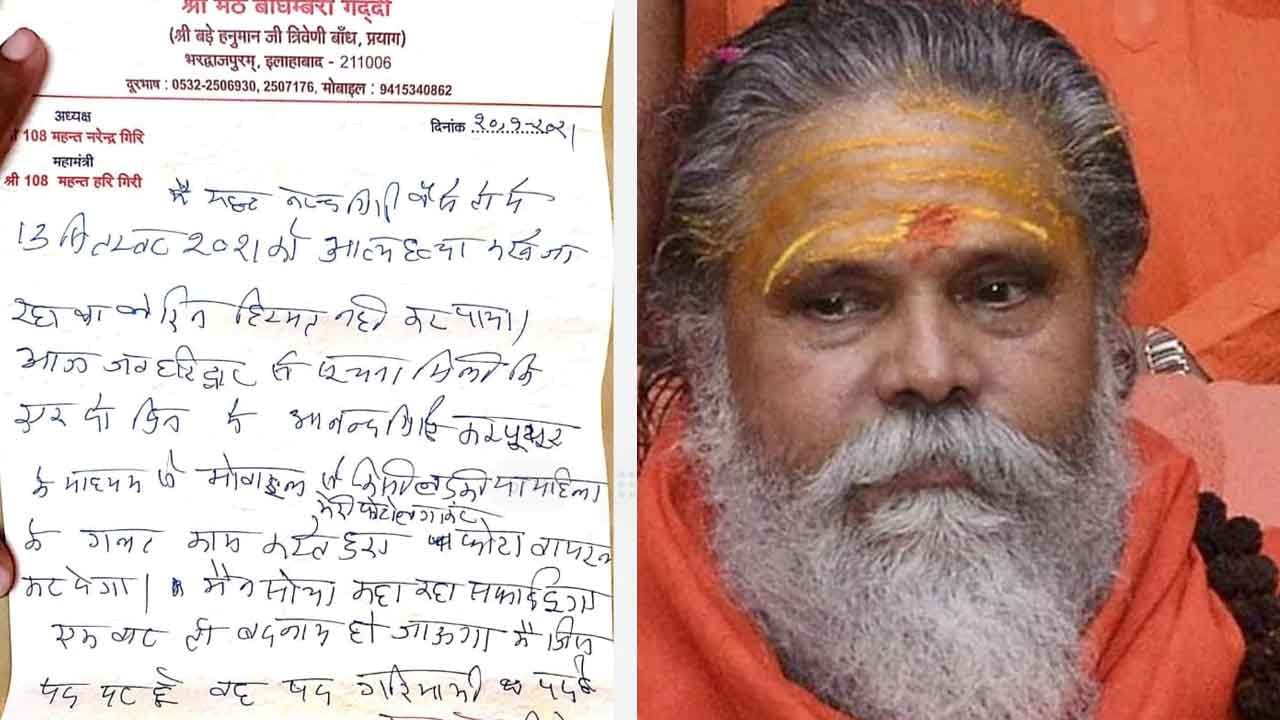 श्री मठ बाघम्बरी गद्दी
(श्री बड़े हनुमान जी त्रिवेणी बाँध, प्रयाग)
भरद्वाजपुरम्, इलाहाबाद - 211006
दूरभाष : 0532-2506930, 2507176, मोबाइल : 9415340862
अध्यक्ष
108 महन्त नरेन्द्र गिरि
दिनांक
महामंत्री
श्री 108 महन्त हरि गिरी
मै महन्त नरेन्द्र गिरी वैसे तो मै
13 सितम्बर २०२१ को आत्महत्या करने जा
रहा था लेकिन हिम्मत नही कर पाया।
आज जब हरिद्वार से सूचना मिली कि
एक दो दिन मे आनन्द गिरि कम्प्यूटर
के माध्यम से मोबाइल से किसी लड़की या महिला
मेरी फोटो लगाकर
के गलत काम करते हुए फोटो वायरल
कर देगा। मैने सोचा कहा सफाई दूंगा
एक बार तो बदनाम हो जाऊगा मै जिस
पद पर हूँ वह पद गरिमामयी पद है